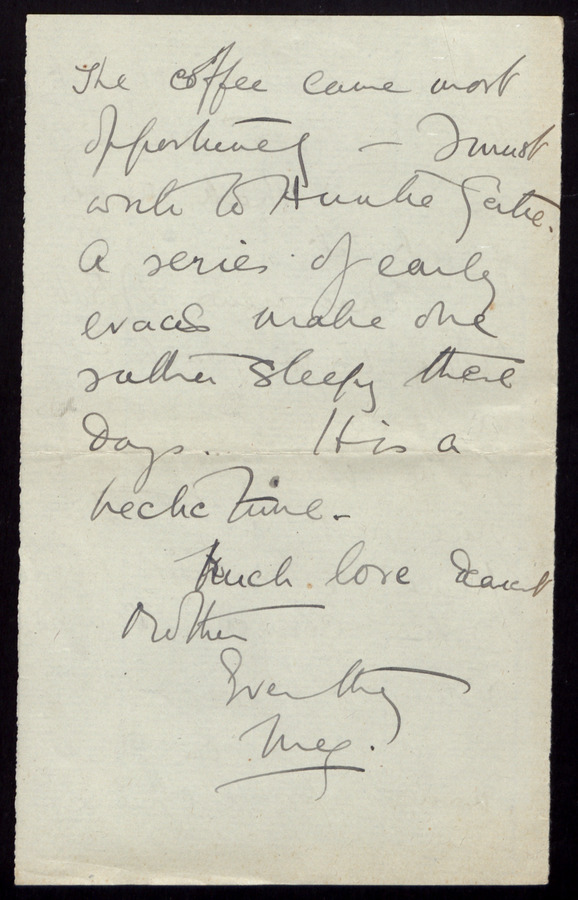 The coffee came most
opportunely — I must
write to Auntie
A series of early
evacs make one
rather sleepy these
days... It is a
hectic time -
Much love dearest
Mother
Ever thy
Meg.